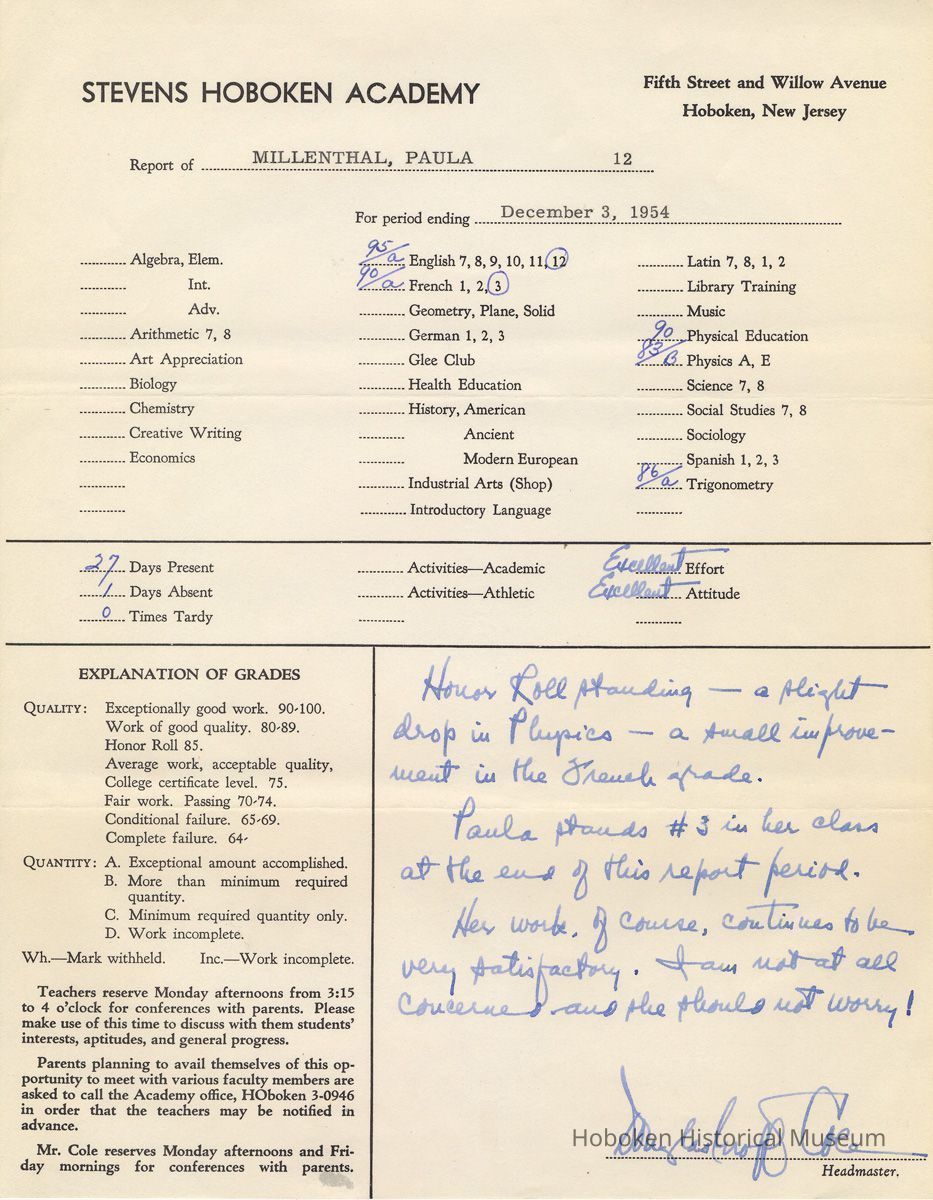 STEVENS HOBOKEN ACADEMY
Fifth Street and Willow Avenue
Hoboken, New Jersey
Report of MILLENTHAL, PAULA 12
For period ending December 3, 1954
Algebra, Elem.
Int.
Adv.
Arithmetic 7, 8
Art Appreciation
Biology
Chemistry
Creative Writing
Economics
95/a English 7, 8, 9, 10, 11, 12
90/a French 1, 2, 3
Geometry, Plane, Solid
German 1, 2, 3
Glee Club
Health Education
History, American
Ancient
Modern European
Industrial Arts (Shop)
Introductory Language
Latin 7, 8, 1, 2
Library Training
Music
90 Physical Education
83/B Physics A, E
Science 7, 8
Social Studies 7, 8
Sociology
Spanish 1, 2, 3
86/a Trigonometry
27 Days Present
1 Days Absent
0 Times Tardy
Activities—Academic
Activities—Athletic
Excellent Effort
Excellent Attitude
EXPLANATION OF GRADES
QUALITY: Exceptionally good work. 90-100.
Work of good quality. 80-89.
Honor Roll 85.
Average work, acceptable quality,
College certificate level. 75.
Fair work. Passing 70-74.
Conditional failure. 65-69.
Complete failure. 64-
QUANTITY: A. Exceptional amount accomplished.
B. More than minimum required
quantity.
C. Minimum required quantity only.
D. Work incomplete.
Wh.—Mark withheld. Inc.—Work incomplete.
Teachers reserve Monday afternoons from 3:15
to 4 o'clock for conferences with parents. Please
make use of this time to discuss with them students'
interests, aptitudes, and general progress.
Parents planning to avail themselves of this op-
portunity to meet with various faculty members are
asked to call the Academy office, HOboken 3-0946
in order that the teachers may be notified in
advance.
Mr. Cole reserves Monday afternoons and Fri-
day mornings for conferences with parents.
Honor Roll standing — a slight
drop in Physics — a small improve-
ment in the French grade.
Paula stands #3 in her class
at the end of this report period.
Her work, of course, continues to be
very satisfactory. I am not at all
concerned and she should not worry!
Cole
Hoboken Historical Museum
Headmaster.